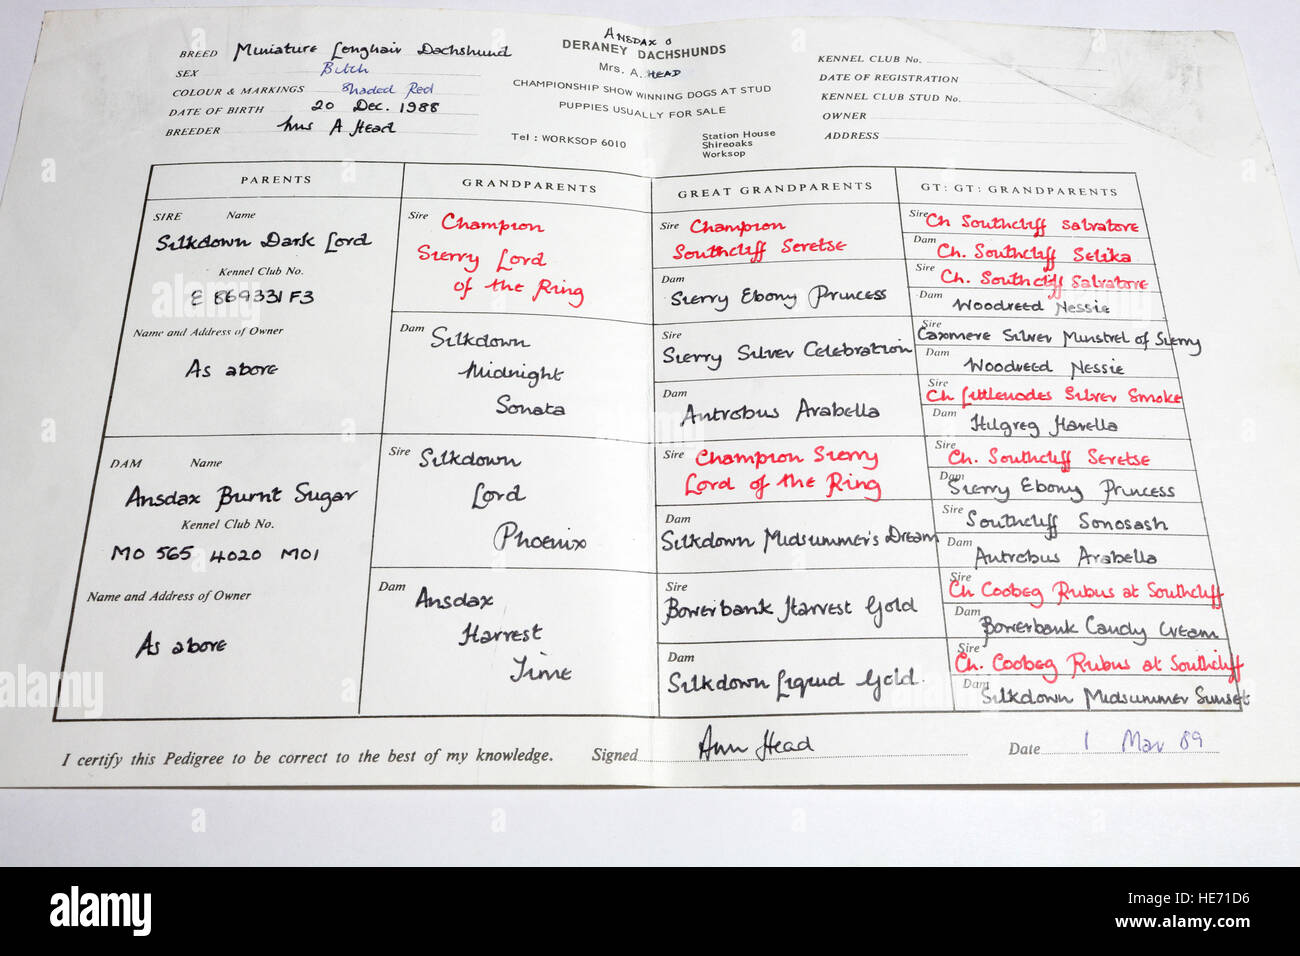 BREED Miniature Longhair Dachshund
SEX Bitch
COLOUR & MARKINGS Shaded Red
DATE OF BIRTH 20 Dec. 1988
BREEDER Mrs A Head
ANSDAX &
DERANEY DACHSHUNDS
Mrs. A. HEAD
CHAMPIONSHIP SHOW WINNING DOGS AT STUD
PUPPIES USUALLY FOR SALE
Tel : WORKSOP 6010
Station House
Shireoaks
Worksop
KENNEL CLUB No.
DATE OF REGISTRATION
KENNEL CLUB STUD No.
OWNER
ADDRESS
PARENTS
SIRE Name
Silkdown Dark Lord
Kennel Club No.
E 869331 F3
Name and Address of Owner
As above
DAM Name
Ansdax Burnt Sugar
Kennel Club No.
MO 565 4020 MO1
Name and Address of Owner
As above
GRANDPARENTS
Sire Champion
Sierry Lord
of the Ring
Dam Silkdown
Midnight
Sonata
Sire Silkdown
Lord
Phoenix
Dam Ansdax
Harvest
Time
GREAT GRANDPARENTS
Sire Champion
Southcliff Seretse
Dam
Sierry Ebony Princess
Sire
Sierry Silver Celebration
Dam
Antrobus Arabella
Sire Champion Sierry
Lord of the Ring
Dam
Silkdown Midsummer's Dream
Sire
Bowerbank Harvest Gold
Dam
Silkdown Liquid Gold.
GT: GT: GRANDPARENTS
Sire Ch Southcliff Salvatore
Dam
Ch. Southcliff Selika
Sire
Ch. Southcliff Salvatore
Dam
Woodreed Nessie
Sire
Caxmere Silver Minstrel of Sierry
Dam
Woodreed Nessie
Sire
Ch Littlenodes Silver Smoke
Dam
Hilgreg Havella
Sire
Ch. Southcliff Seretse
Dam
Sierry Ebony Princess
Sire
Southcliff Sonosash
Dam
Antrobus Arabella
Sire
Ch Coobeg Rubus at Southcliff
Dam
Bowerbank Candy Cream
Sire
Ch. Coobeg Rubus at Southcliff
Dam
Silkdown Midsummer Sunset
I certify this Pedigree to be correct to the best of my knowledge. Signed Ann Head Date 1 Mar 89
alamy
Image ID: HE71D6
www.alamy.com